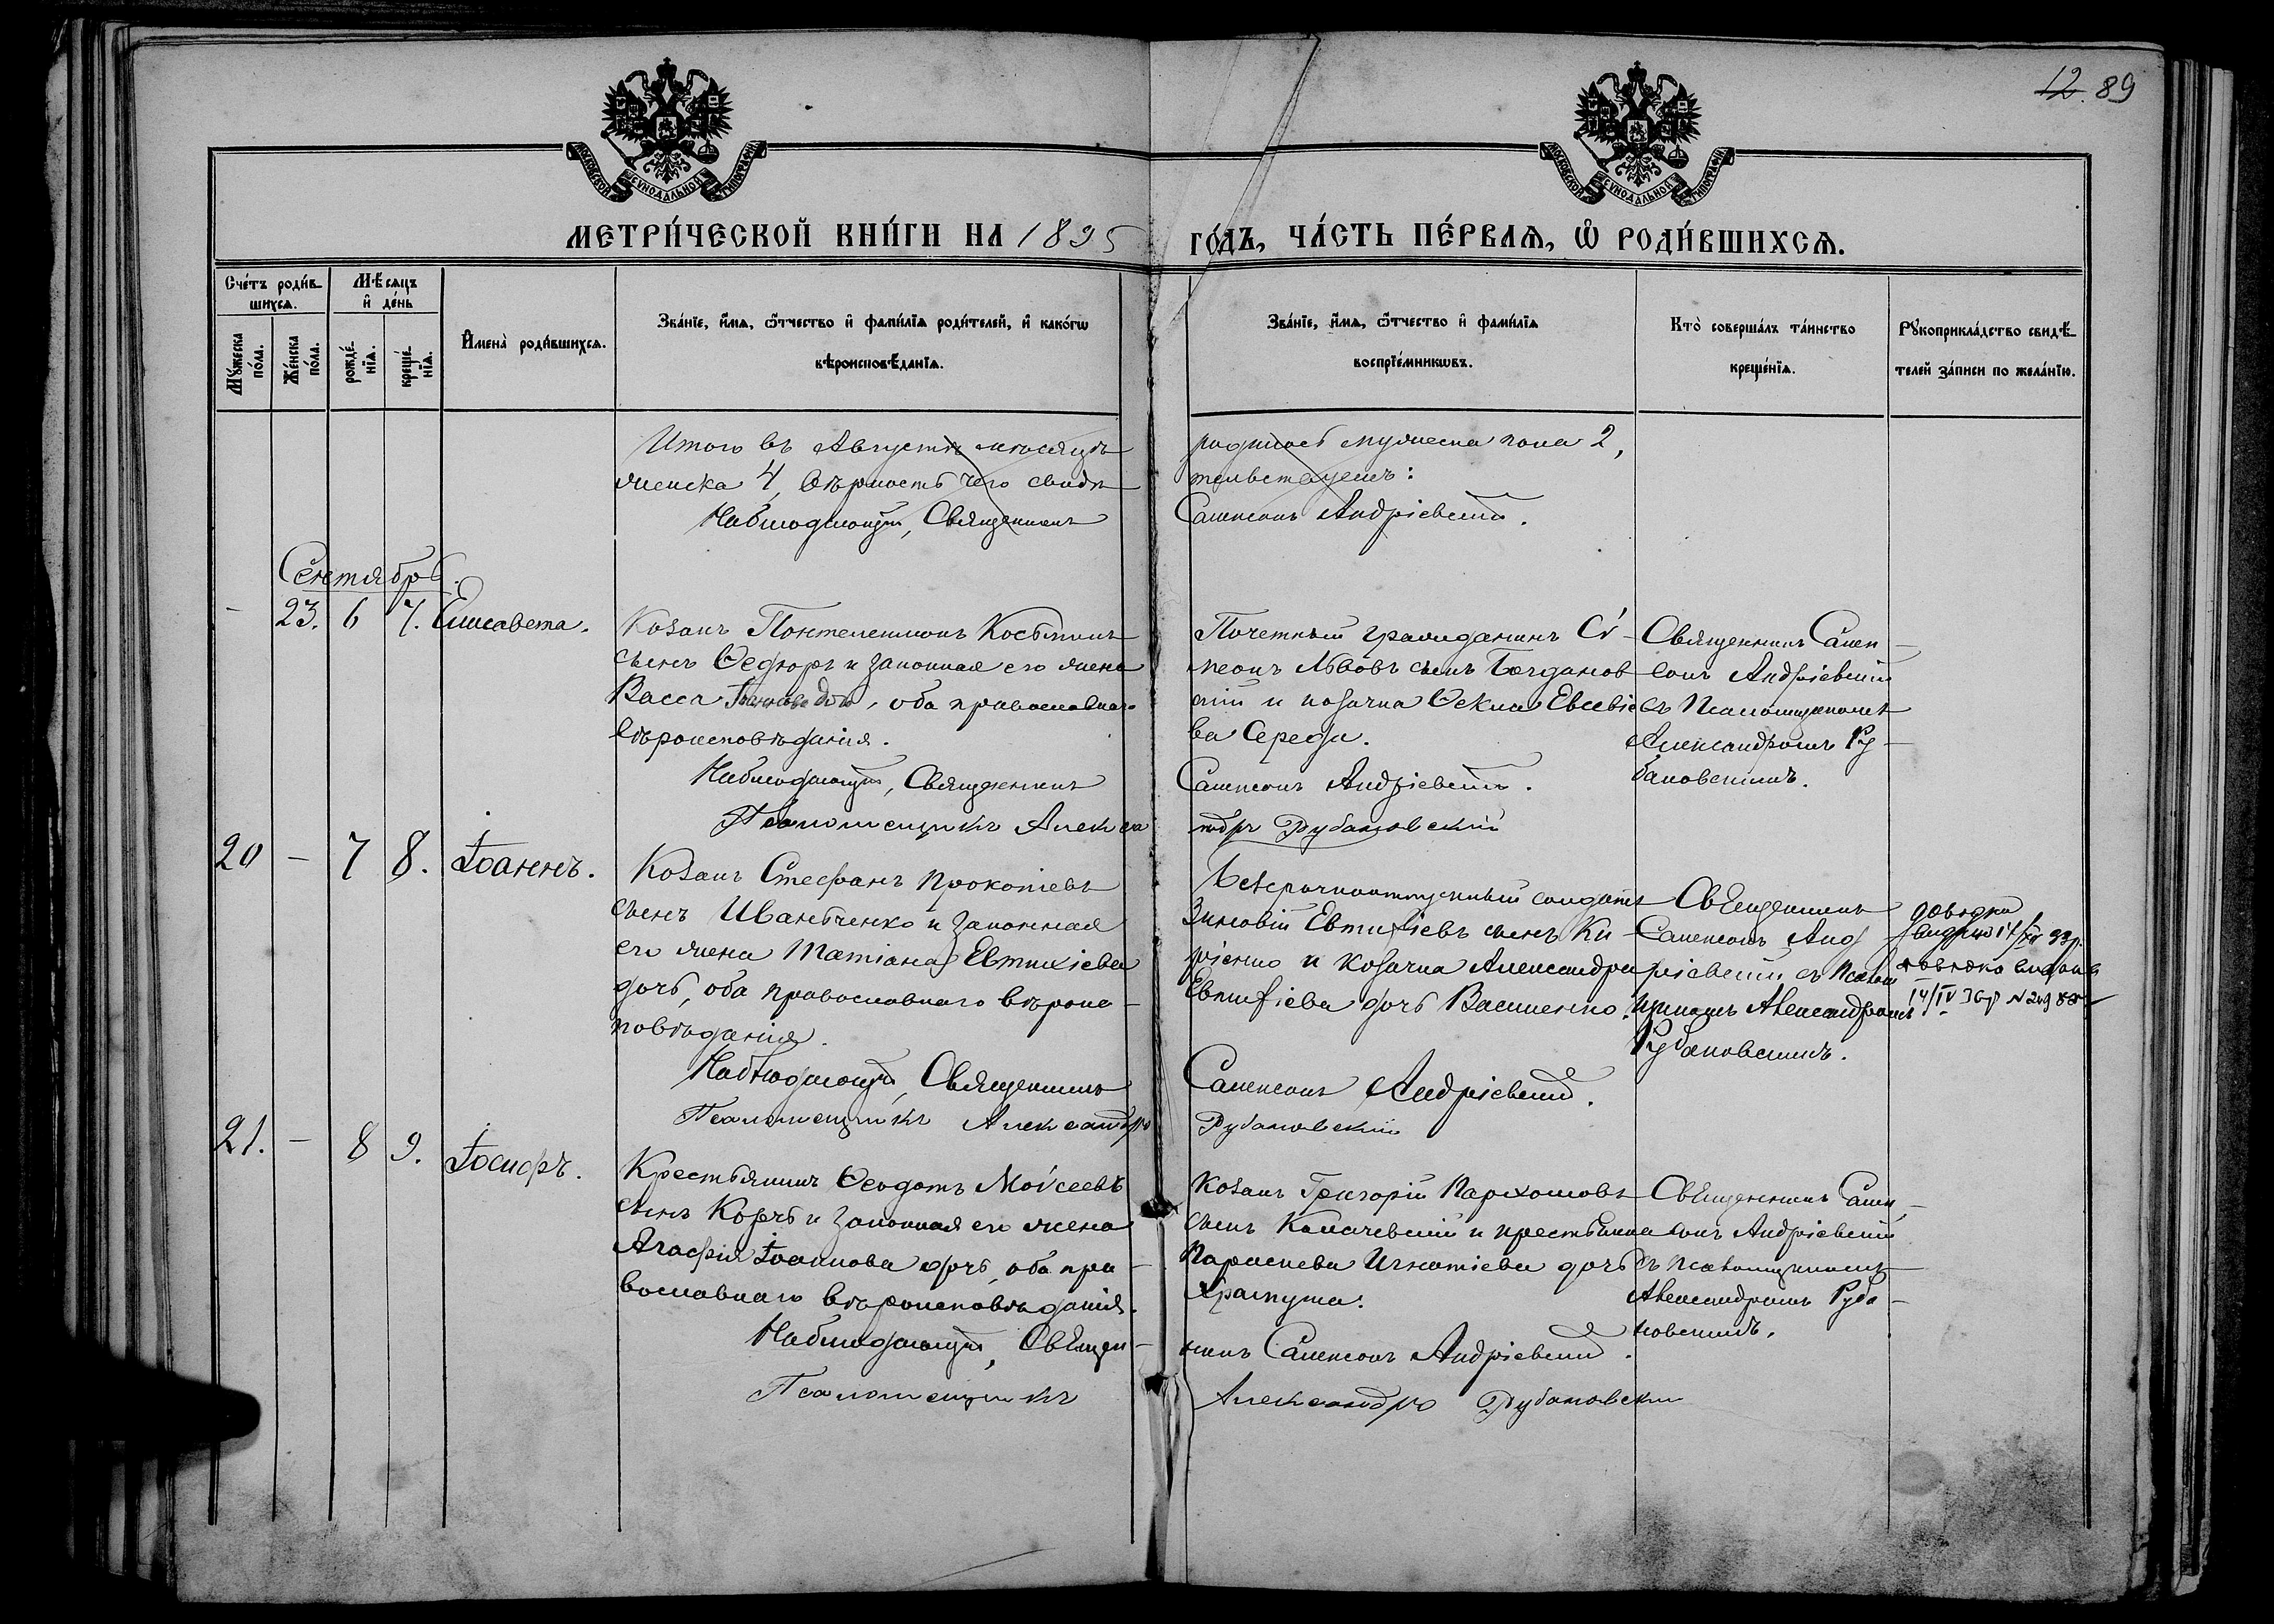 12. 89
МОСКОВСКОЙ СУНОДАЛЬНОЙ ТИПОГРАФІИ
МОСКОВСКОЙ СУНОДАЛЬНОЙ ТИПОГРАФІИ
МЕТРИ́ЧЕСКОЙ КНИ́ГИ НА 1895 ГО́ДЪ, ЧА́СТЬ ПЕ́РВАѦ, Ѡ РОДИ́ВШИХСѦ.
Сче́тъ роди́в-
шихсѧ.
Мѣ́сѧцъ
и҆ де́нь
Мꙋ́жеска по́ла.
Же́нска по́ла.
рожде́-нїѧ.
креще́-нїѧ.
И҆мена̀ роди́вшихсѧ.
Зва́нїе, и҆́мѧ, ѻ҆́тчество и҆ фами́лїѧ роди́телей, и҆ како́гѡ
вѣроисповѣ́данїѧ.
Зва́нїе, и҆́мѧ, ѻ҆́тчество и҆ фами́лїѧ
воспрїе́мникѡвъ.
Кто̀ соверша́лъ та́инство
креще́нїѧ.
Рꙋкоприкла́дство свидѣ́-
телей за́писи по жела́нїю.
Итого въ Августѣ мѣсяцѣ
женска 4, вѣрность чего свидѣ
Наблюдающій, Священникъ
родилось мужеска пола 2,
тельствуемъ:
Сампсонъ Андріевскій.
Сентябрь.
- 23. 6 7. Елисавета.
Козакъ Пантелеимонъ Косьминъ
сынъ Ѳедоръ и законная его жена
Васса, оба православнаго
вѣроисповѣданія.
Наблюдающій, Священникъ
Псаломщикъ Алекса
Почетный гражданинъ Сѵ-
меонъ Львовъ сынъ Богданов
скій и козачка Ѳекла Евсевіе
ва Середа.
Сампсонъ Андріевскій.
ндръ Рубановскій
Священникъ Самп-
сонъ Андріевскій
съ Псаломщикомъ
Александромъ Ру-
бановскимъ.
20 - 7 8. Іоаннъ.
Козакъ Стефанъ Прокопіевъ
сынъ Иванченко и законная
его жена Татіана Евтихіева
дочь, оба православнаго вѣроис-
повѣданія.
Наблюдающій, Священникъ
Псаломщикъ Александръ
Безсрочноотпускный солдатъ
Зиновій Евтихіевъ сынъ Ки-
ріенко и козачка Александра
Евтихіева дочь Василенко.
Сампсонъ Андріевскій.
Рубановскій
Священникъ
Сампсонъ Анд
ріевскій съ Псалом
щикомъ Александромъ
Рубановскимъ.
довідка
видана 14/III 33р.
довідка видана
14/IV 36р
21. - 8 9. Іосифъ.
Крестьянинъ Ѳеодотъ Моѵсеевъ
сынъ Корчъ и законная его жена
Агафія Іоаннова дочь, оба пра-
вославнаго вѣроисповѣданія.
Наблюдающій, Священ-
Псаломщикъ
Козакъ Григорій Пархомовъ
сынъ Калачевскій и крестьянка
Параскева Игнатіева дочь
никъ Сампсонъ Андріевскій.
Александръ Рубановскій
Священникъ Самп-
сонъ Андріевскій
съ Псаломщикомъ
Александромъ Руба-
новскимъ.